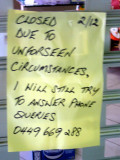 CLOSED 2/12
DUE TO
UNFORSEEN
CIRCUMSTANCES,
I WILL STILL TRY
TO ANSWER PHONE
QUERIES
0449 669 288